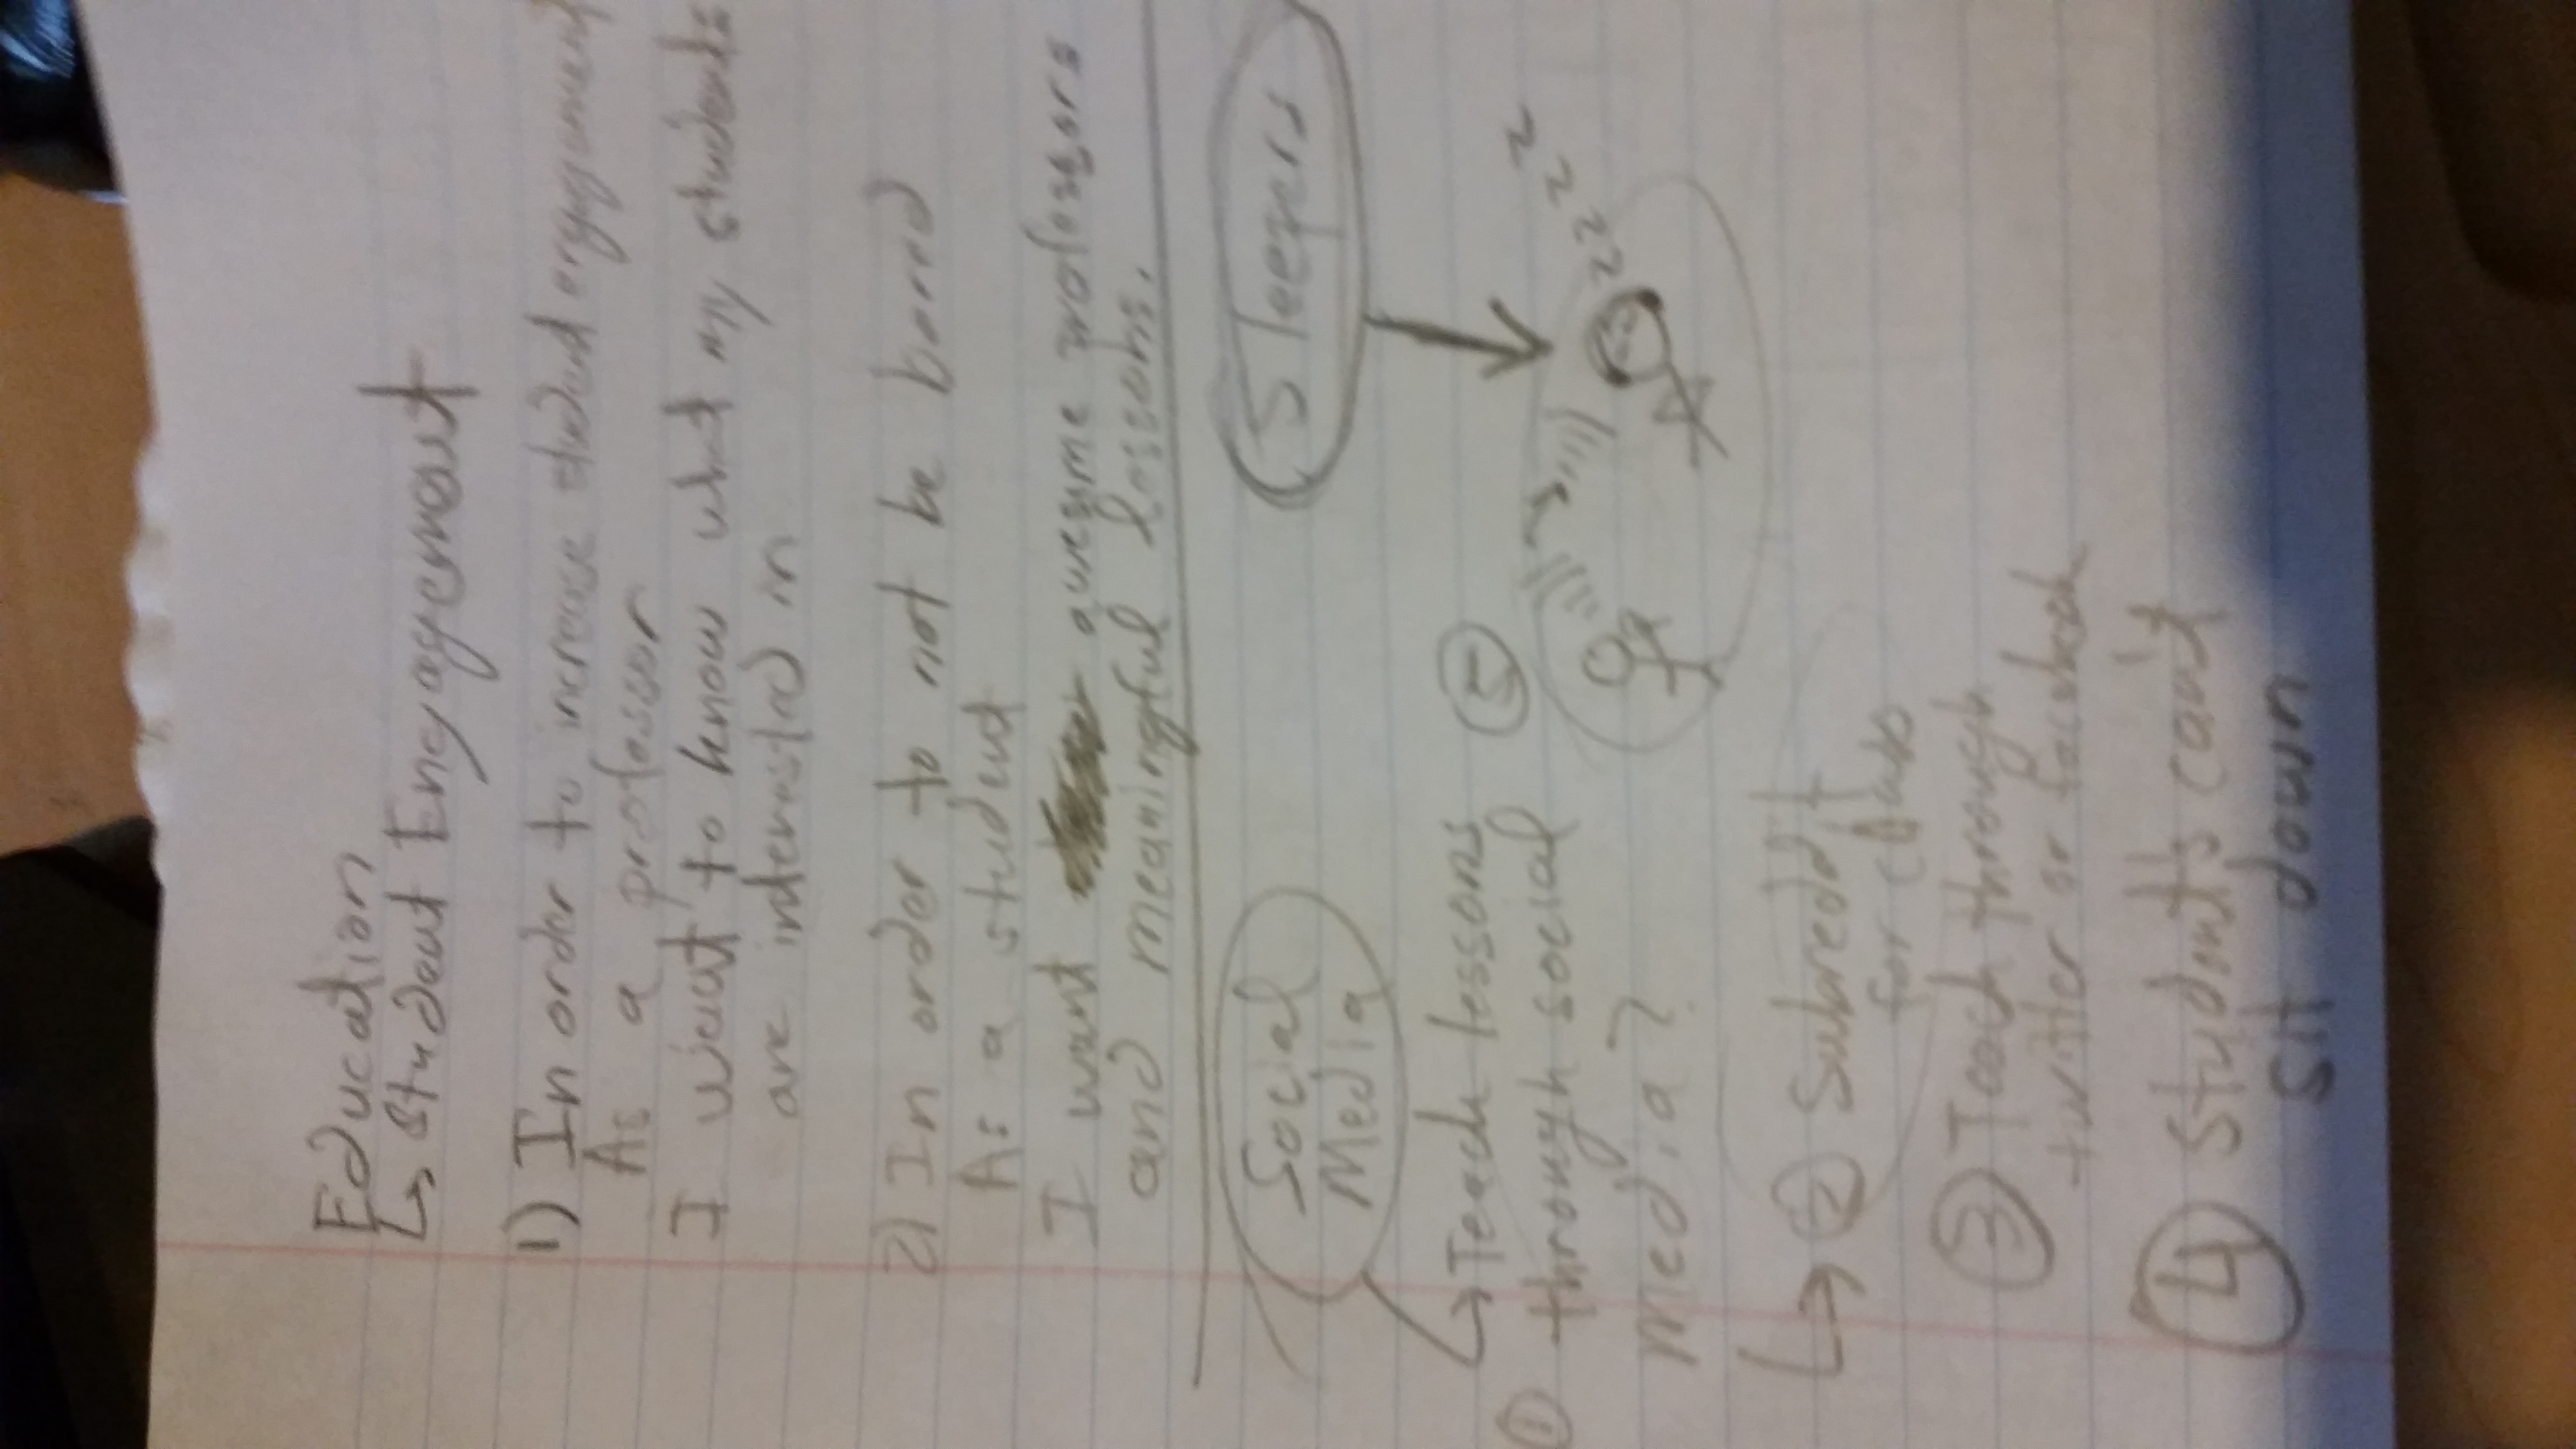 Education
↳ Student Engagement
1) In order to increase student engagement
As a professor
I want to know what my students
are interested in
2) In order to not be bored
As a student
I want awesome professors
and meaningful lessons.
Social
Media
↳ Teach lessons
① through social
media?
↳ ② Subreddit
for class
③ Teach through
twitter or facebook
④ Student's can't
sit down
Sleepers
⑤
z z z z